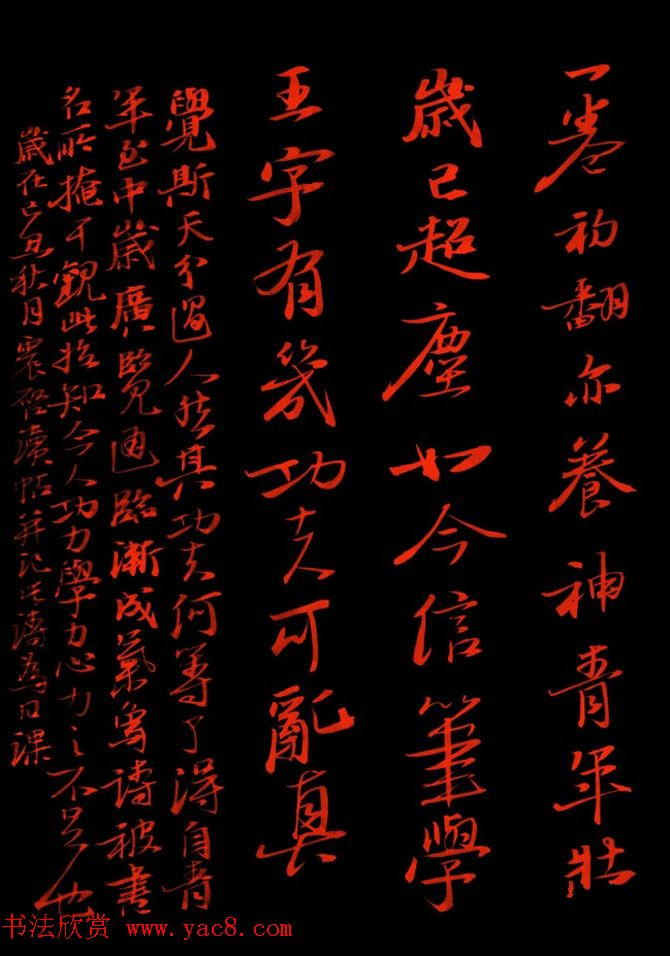 一卷初翻亦養神青年壯
歲已超塵如今信筆學
王字有幾功夫可亂真
覺斯天分過人然其功夫何等了得自青
年至中歲廣覽通臨漸成氣象詩被書
名所掩干觀此始知今人功力學力心力之不足也
歲在己丑秋月震 讀帖并記 詩為日課
书法欣赏 www.yac8.com